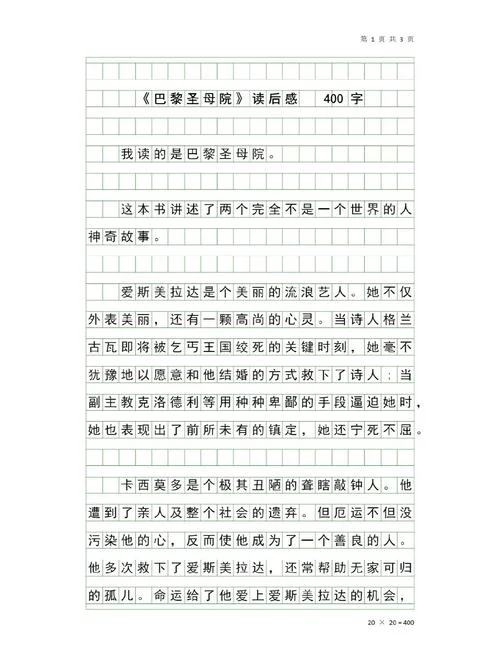 第 1 页 共 3 页
《巴黎圣母院》读后感 400 字
我读的是巴黎圣母院。
这本书讲述了两个完全不是一个世界的人
神奇故事。
爱斯美拉达是个美丽的流浪艺人。她不仅
外表美丽，还有一颗高尚的心灵。当诗人格兰
古瓦即将被乞丐王国绞死的关键时刻，她毫不
犹豫地以愿意和他结婚的方式救下了诗人；当
副主教克洛德利等用种种卑鄙的手段逼迫她时，
她也表现出了前所未有的镇定，她还宁死不屈。
卡西莫多是个极其丑陋的聋瞎敲钟人。他
遭到了亲人及整个社会的遗弃。但厄运不但没
污染他的心，反而使他成为了一个善良的人。
他多次救下了爱斯美拉达，还常帮助无家可归
的孤儿。命运给了他爱上爱斯美拉达的机会，
20 × 20 = 400